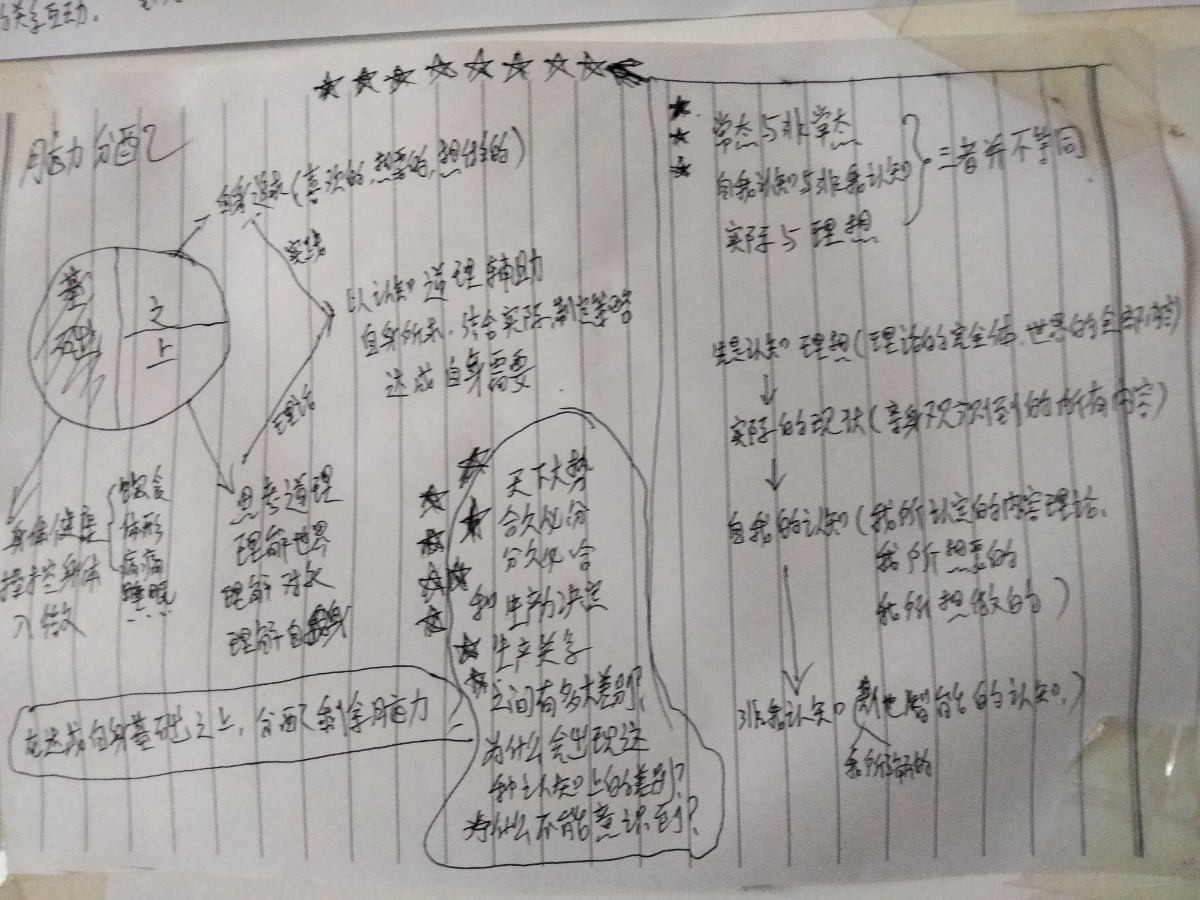 的关系互动.
用脑力分配
自身追求(喜欢的,想要的,想做的)
实践
基础
之
上
以认知道理辅助
自身所求,结合实际,制定策略
达成自身需要
理论
身体健康
操控身体
饮食
体形
病痛
睡眠
思考道理
理解世界
理解
理解自身
在达成自身基础之上,分配剩余用脑力
天下大势
合久必分
分久必合
和生产力决定
生产关系
之间有多大差别?
为什么会出现这
种认知上的差别?
为什么不能意识到?
常态与非常态
自我认知与非我认知
实际与理想
三者并不等同
认知理想(理论的完全体,世界的全部内容)
实际的现状(亲身观测到的所有内容)
自我的认知(我所认定的内容理论,
我所想要的
我所想做的)
非我认知(其他智能的认知,)
我所